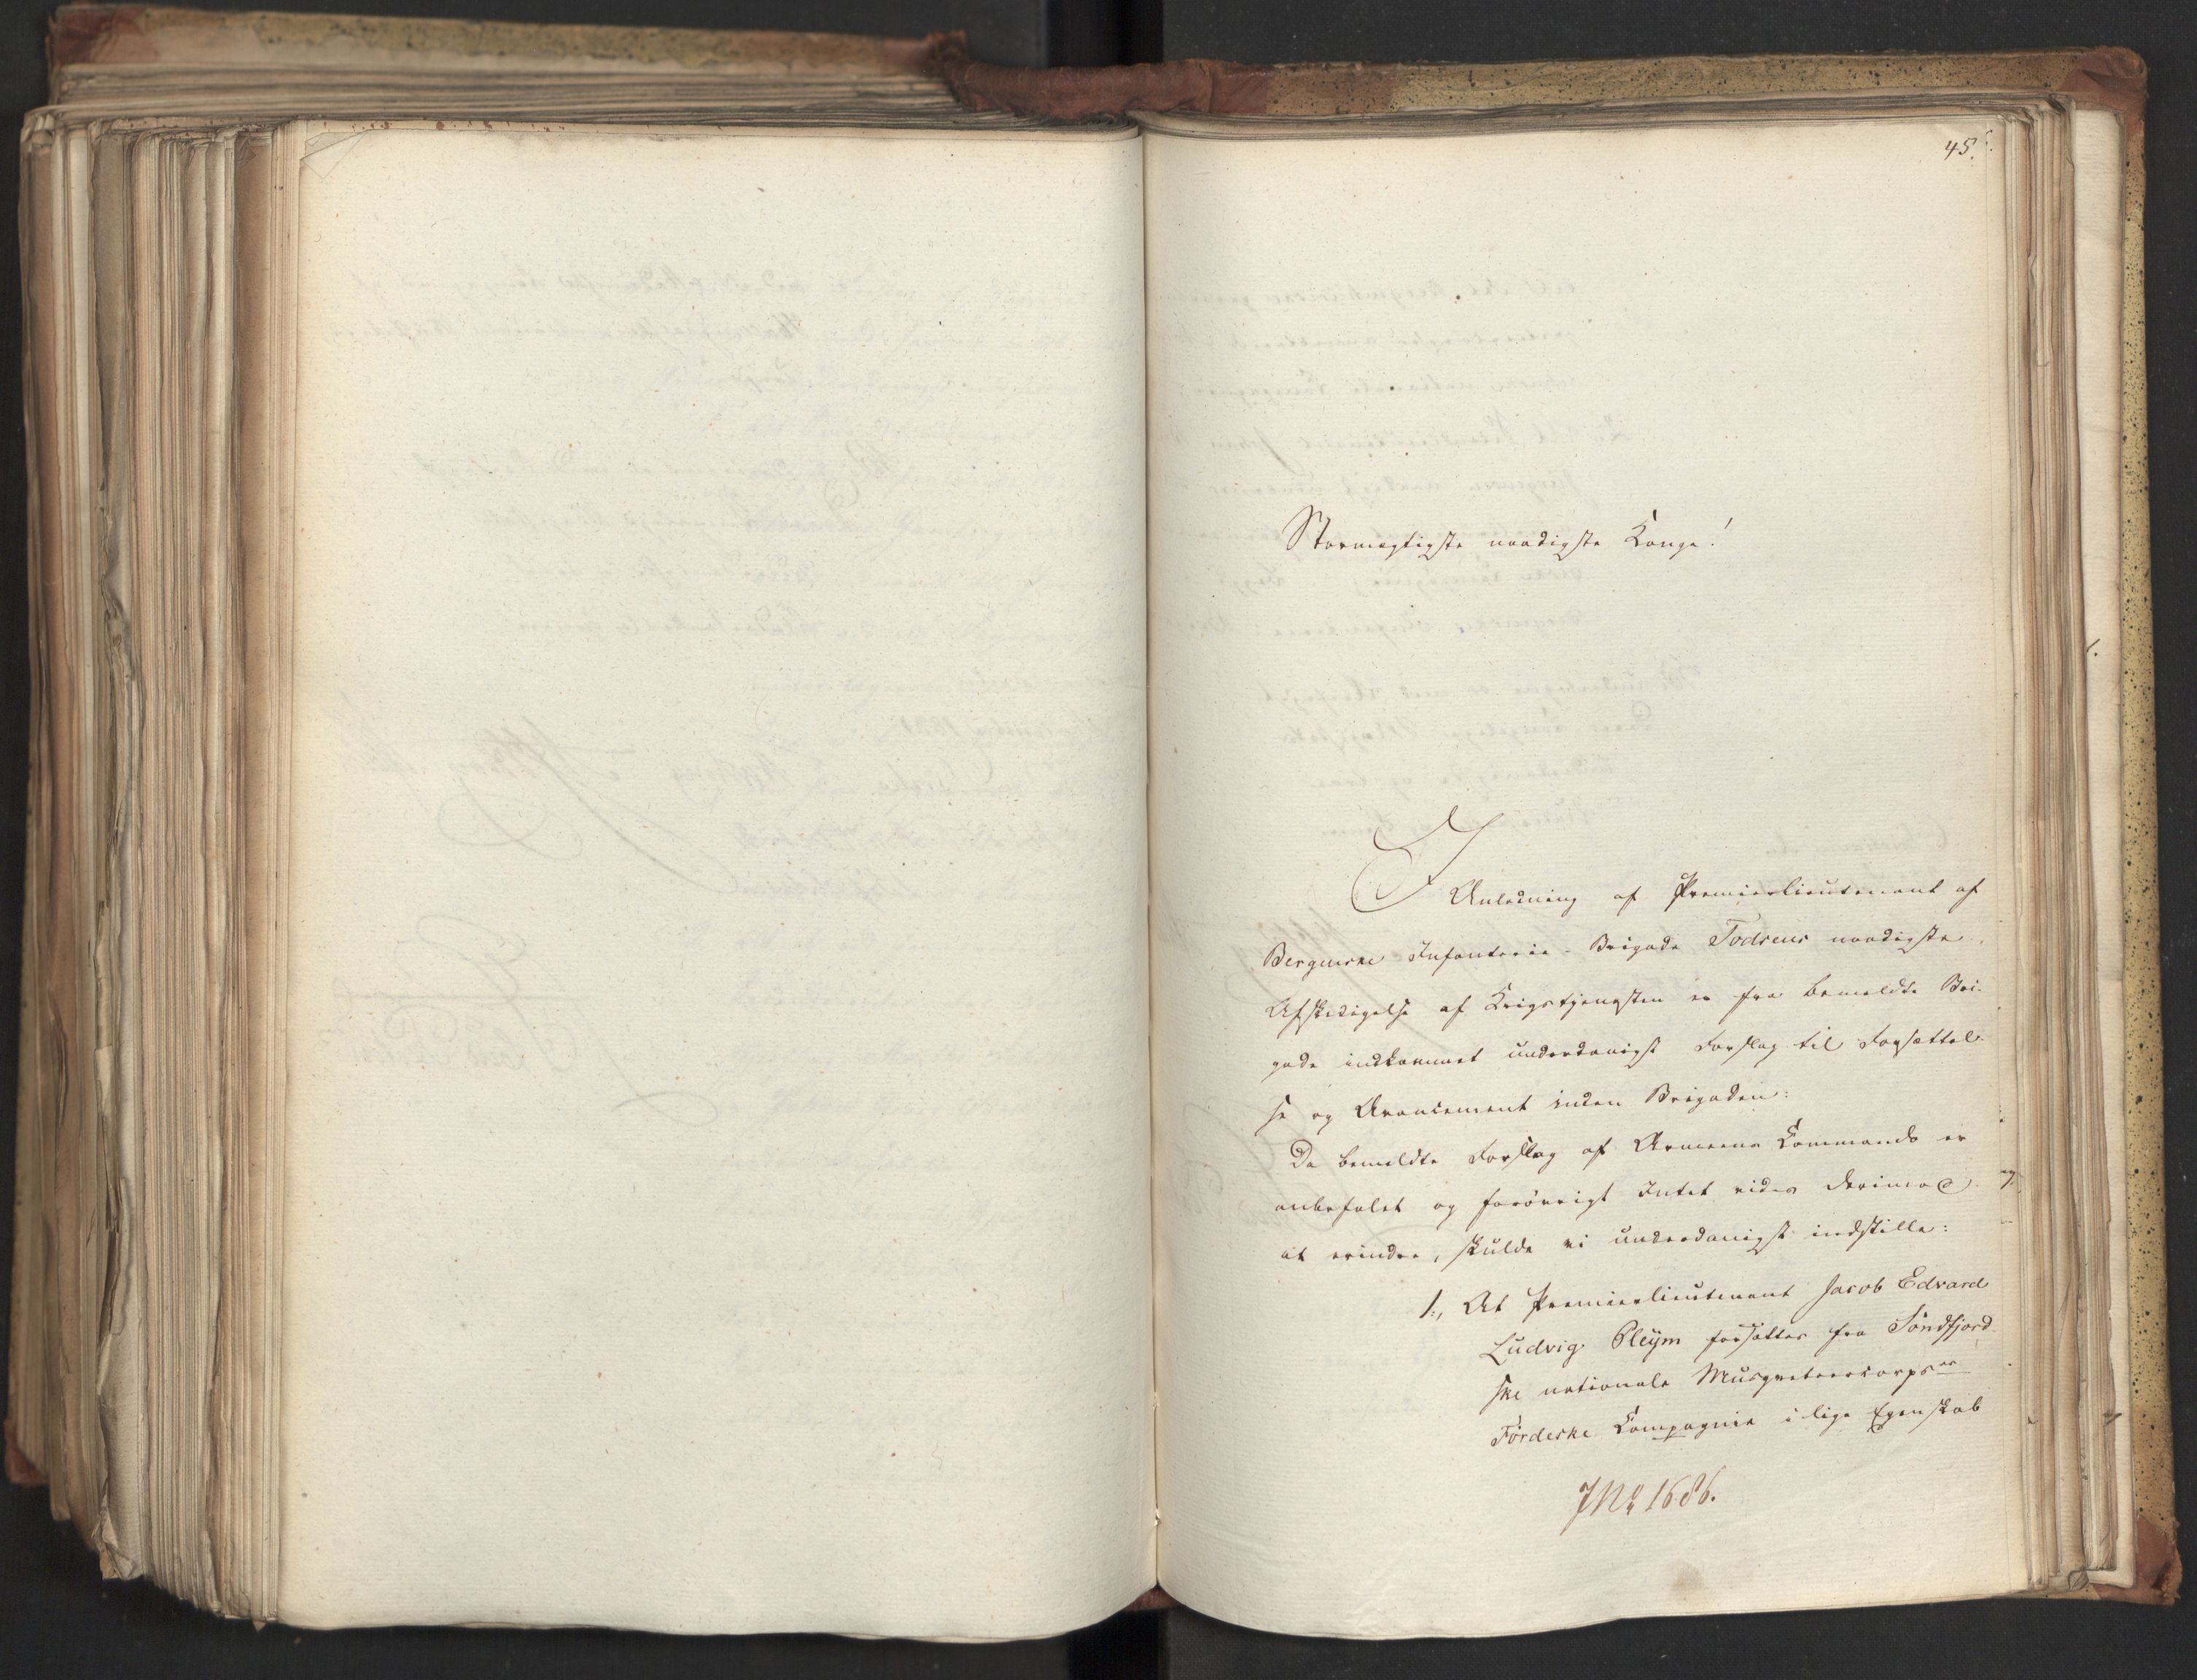 45.
Stormægtigste naadigste Konge!
I Anledning af Premierlieutenant af
Bergenske Infanterie-Brigade Todsens naadigste
Afskedigelse af Krigstjenesten er fra bemeldte Bri-
gade indkommet underdanigst Forslag til Forsættel-
se og Avancement inden Brigaden:
Da bemeldte Forslag af Armeens Commando er
anbefalet og forøvrigt Intet vides derimod
at erindre, skulde vi underdanigst indstille:
1., At Premierlieutenant Jacob Edvard
Ludvig Pleÿm forsættes fra Søndfjord-
ske nationale Musqueteercorps's
Førdeske Compagnie i lige Egenskab
JNo 1686.